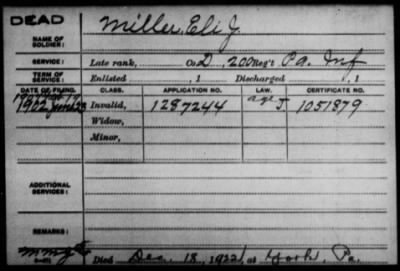 DEAD
NAME OF SOLDIER: Miller, Eli J.
SERVICE: Late rank, Co. D, 200 Reg't Pa. Inf
TERM OF SERVICE: Enlisted , 1 Discharged , 1
DATE OF FILING. CLASS. APPLICATION NO. LAW. CERTIFICATE NO.
1902 Invalid, 1287244 1051879
Widow,
Minor,
ADDITIONAL SERVICES:
REMARKS:
Died Dec. 18, 1922, at York, Pa.